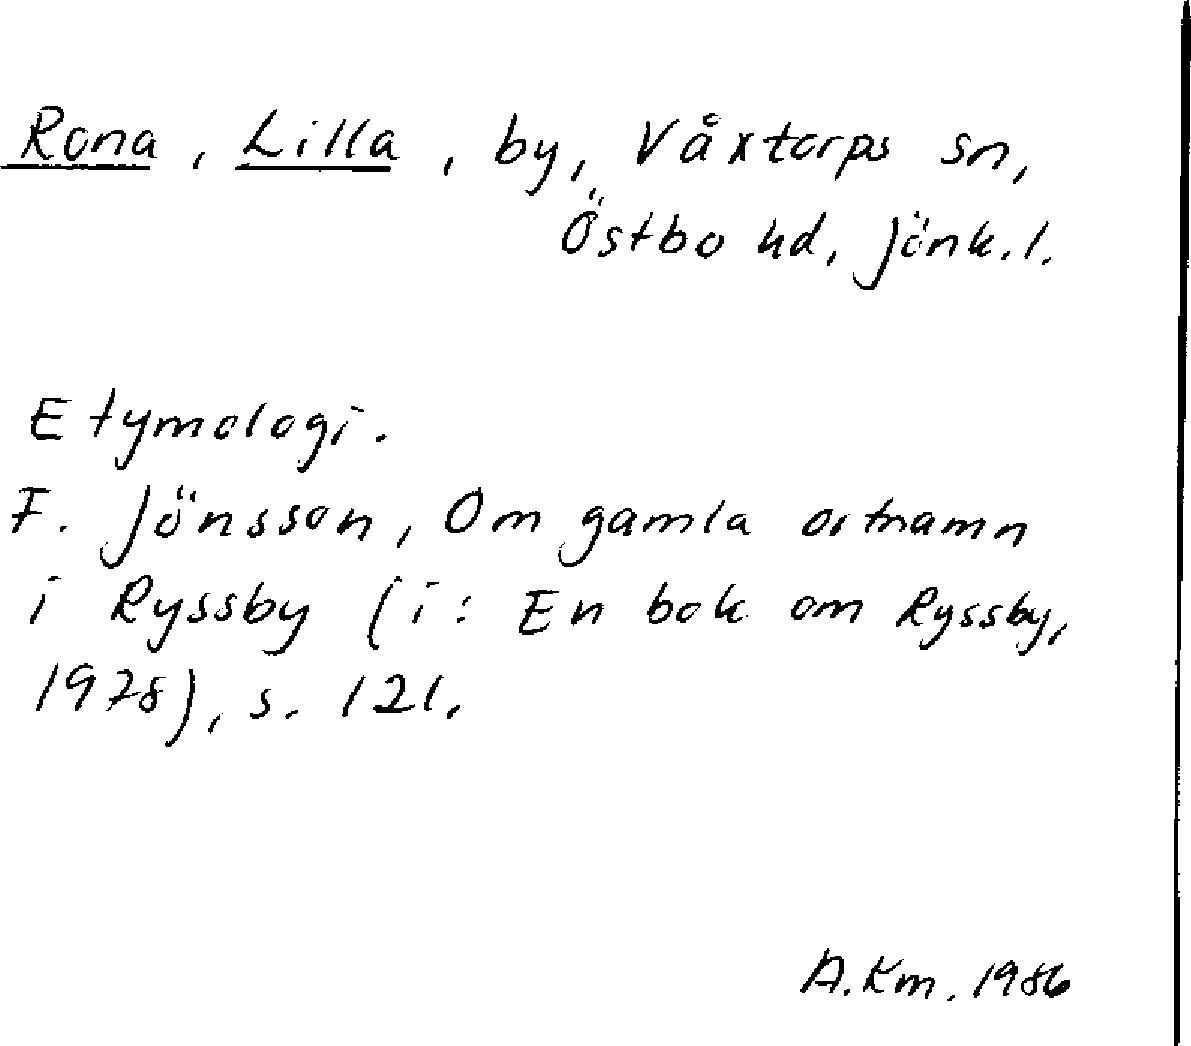 Rona, Lilla, by, Våxtorps sn,
Östbo hd, Jönk.l.
Etymologi.
F. Jönsson, Om gamla ortnamn
i Ryssby (i: En bok om Ryssby,
1978), s. 121.
A.Km. 1986